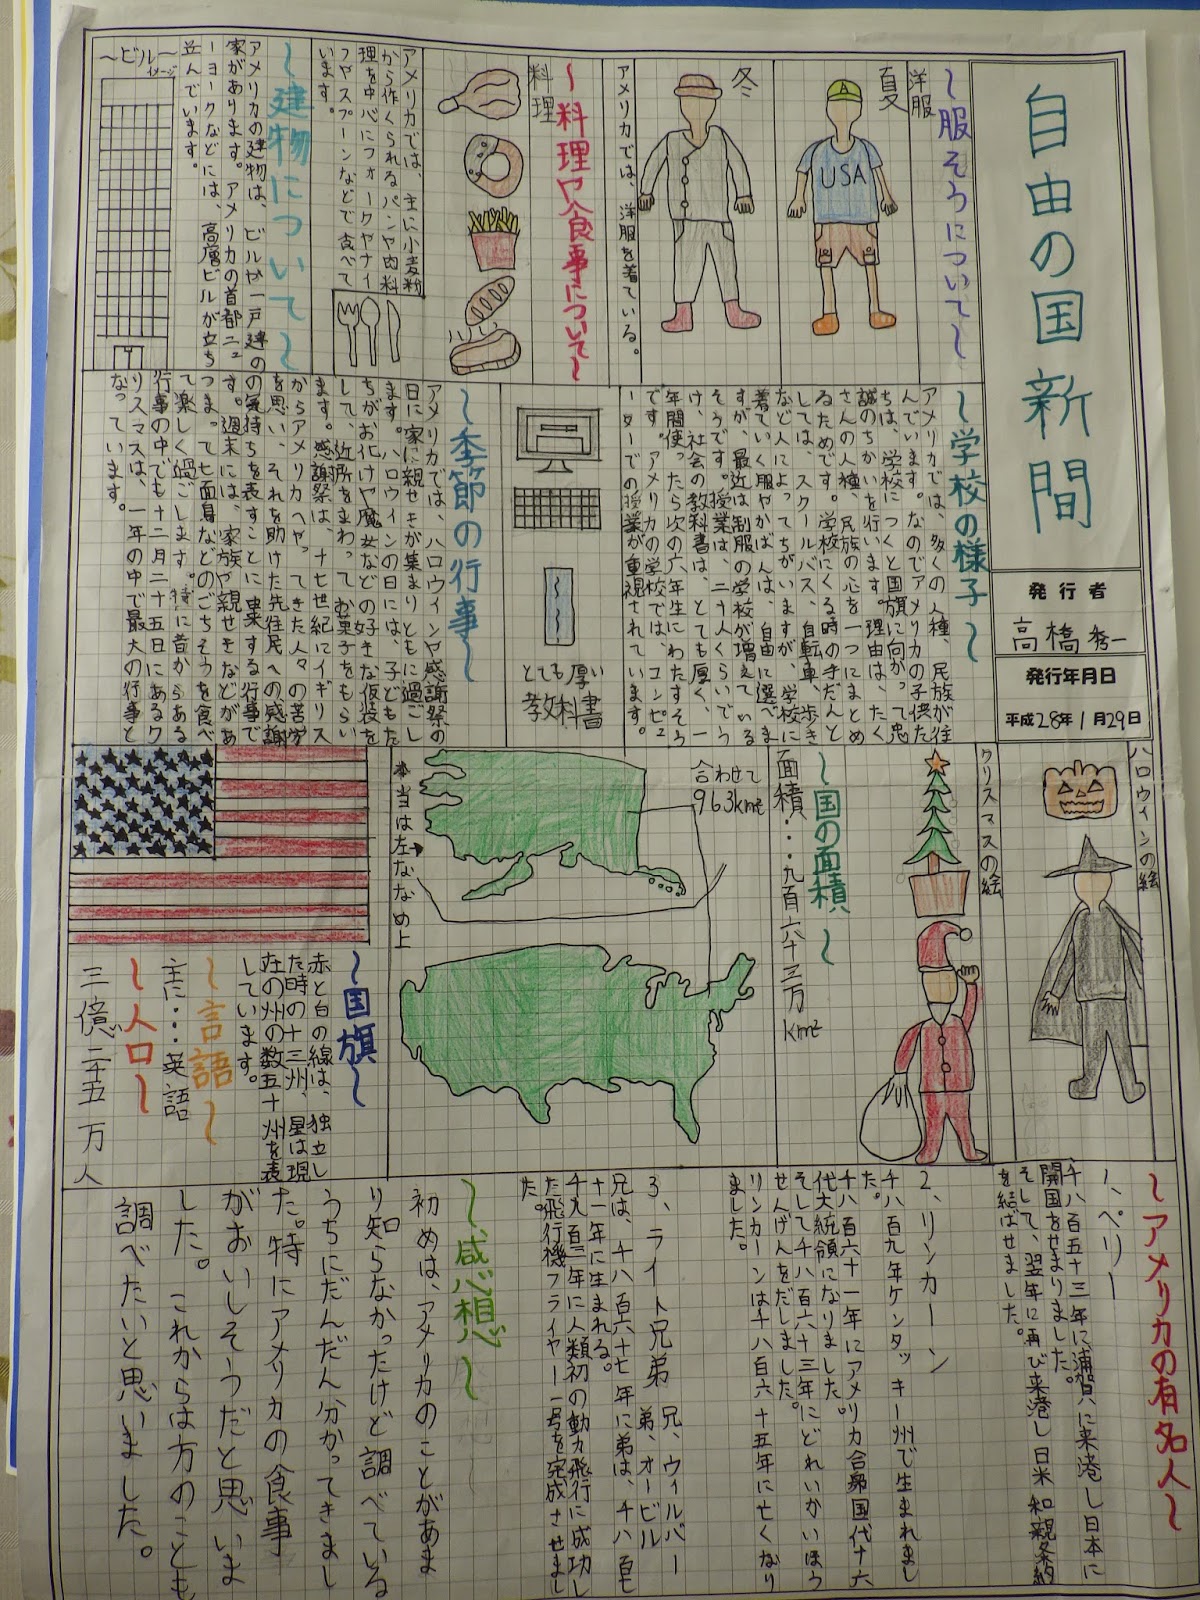 自由の国新聞
発行者
高橋秀一
発行年月日
平成28年1月29日
〜服そうについて〜
洋服
夏
A
USA
冬
アメリカでは、洋服を着ている。
〜料理や食事について〜
料理
アメリカでは、主に小麦粉
から作くられるパンや肉料
理を中心にフォークやナイ
フやスプーンなどで食べて
います。
〜建物について〜
アメリカの建物は、ビルや一戸建の
家があります。アメリカの首都ニュ
ーヨークなどには、高層ビルが立ち
並んでいます。
〜ビル〜
イメージ
〜学校の様子〜
アメリカでは、多くの人種、民族が住
んでいます。なのでアメリカの子供た
ちは、学校につくと国旗に向かって忠
誠のちかいを行います。理由は、たく
さんの人種、民族の心を一つにまとめ
るためです。学校にくる時の手だんと
しては、スクールバス、自転車、歩き
など人によってちがいますが、学校に
着ていく服やかばんは、自由に選べま
すが、最近は制服の学校が増えている
そうです。授業は、二十人くらいでう
け、社会の教科書は、とても厚く、一
年間使ったら次の六年生にわたすそう
です。アメリカの学校では、コンピュ
ーターでの授業が重視されています。
とても厚い
教科書
〜季節の行事〜
アメリカでは、ハロウィンや感謝祭の
日に家に親せきが集まりともに過ごし
ます。ハロウィンの日には、子どもた
ちがお化けや魔女などの好きな仮装を
して、近所をまわってお菓子をもらい
ます。感謝祭は、十七世紀にイギリス
からアメリカへやってきた人々の苦労
を思い、それを助けた先住民への感謝
の気持ちを表すことに由来する行事で
す。週末には、家族や親せきなどがあ
つまって七面鳥などのごちそうを食べ
て楽しく過ごします。特に昔からある
行事の中でも十二月二十五日にあるク
リスマスは、一年の中で最大の行事と
なっています。
ハロウィンの絵
クリスマスの絵
〜国の面積〜
面積・・・九百六十三万km²
合わせて
963km²
本当は左ななめ上
〜国旗〜
赤と白の線は、独立し
た時の十三州、星は現
在の州の数五十州を表
しています。
〜言語〜
主に・・・英語
〜人口〜
三億二千五百万人
〜アメリカの有名人〜
1、ペリー
千八百五十三年に浦賀に来港し日本に
開国をせまりました。
そして、翌年に再び来港し日米和親条約
を結ばせました。
2、リンカーン
千八百九年ケンタッキー州で生まれまし
た。
千八百六十一年にアメリカ合衆国代十六
代大統領になりました。
そして千八百六十三年にどれいかいほう
せんげんをだしました。
リンカーンは千八百六十五年に亡くなり
ました。
3、ライト兄弟
兄、ウィルバー
弟、オービル
兄は、千八百六十七年に弟は、千八百七
十一年に生まれる。
千九百三年に人類初の動力飛行に成功し
た飛行機フライヤー一号を完成させまし
た。
〜感想〜
初めは、アメリカのことがあま
り知らなかったけど調べている
うちにだんだん分かってきまし
た。特にアメリカの食事
がおいしそうだと思いま
した。これからは方のことも
調べたいと思いました。